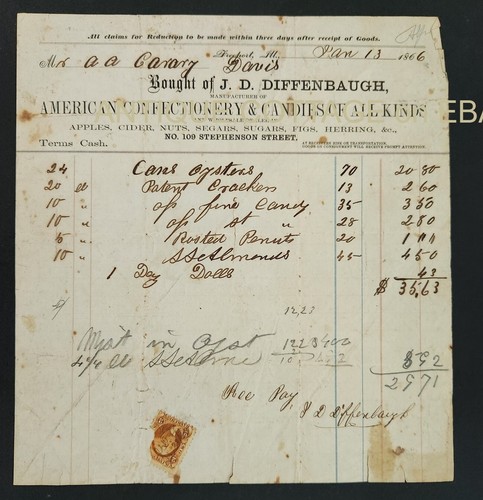 All claims for Reduction to be made within three days after receipt of Goods.
Freeport, Ill. Jan 13 1866
Mr A A Carary Davis
Bought of J. D. DIFFENBAUGH,
MANUFACTURER OF
AMERICAN CONFECTIONERY & CANDIES OF ALL KINDS
AND WHOLESALE DEALER IN
APPLES, CIDER, NUTS, SEGARS, SUGARS, FIGS, HERRING, &c.,
NO. 109 STEPHENSON STREET,
Terms Cash.
AT RECEIVERS RISK OF TRANSPORTATION.
ERRORS OR OVERCHARGE WILL RECEIVE PROMPT ATTENTION.
24 Cans Oysters 70 20 80
20 Patent Crackers 13 2 60
10 " fine Candy 35 3 50
10 " st " 28 2 80
5 " Rosted Penuts 20 1 "
10 " SS Almonds 45 4 50
1 Doz Dolls 43
$ 35,63
12,23
in Oyst
5 92
29 71
Rec Pay
J D Diffenbaugh